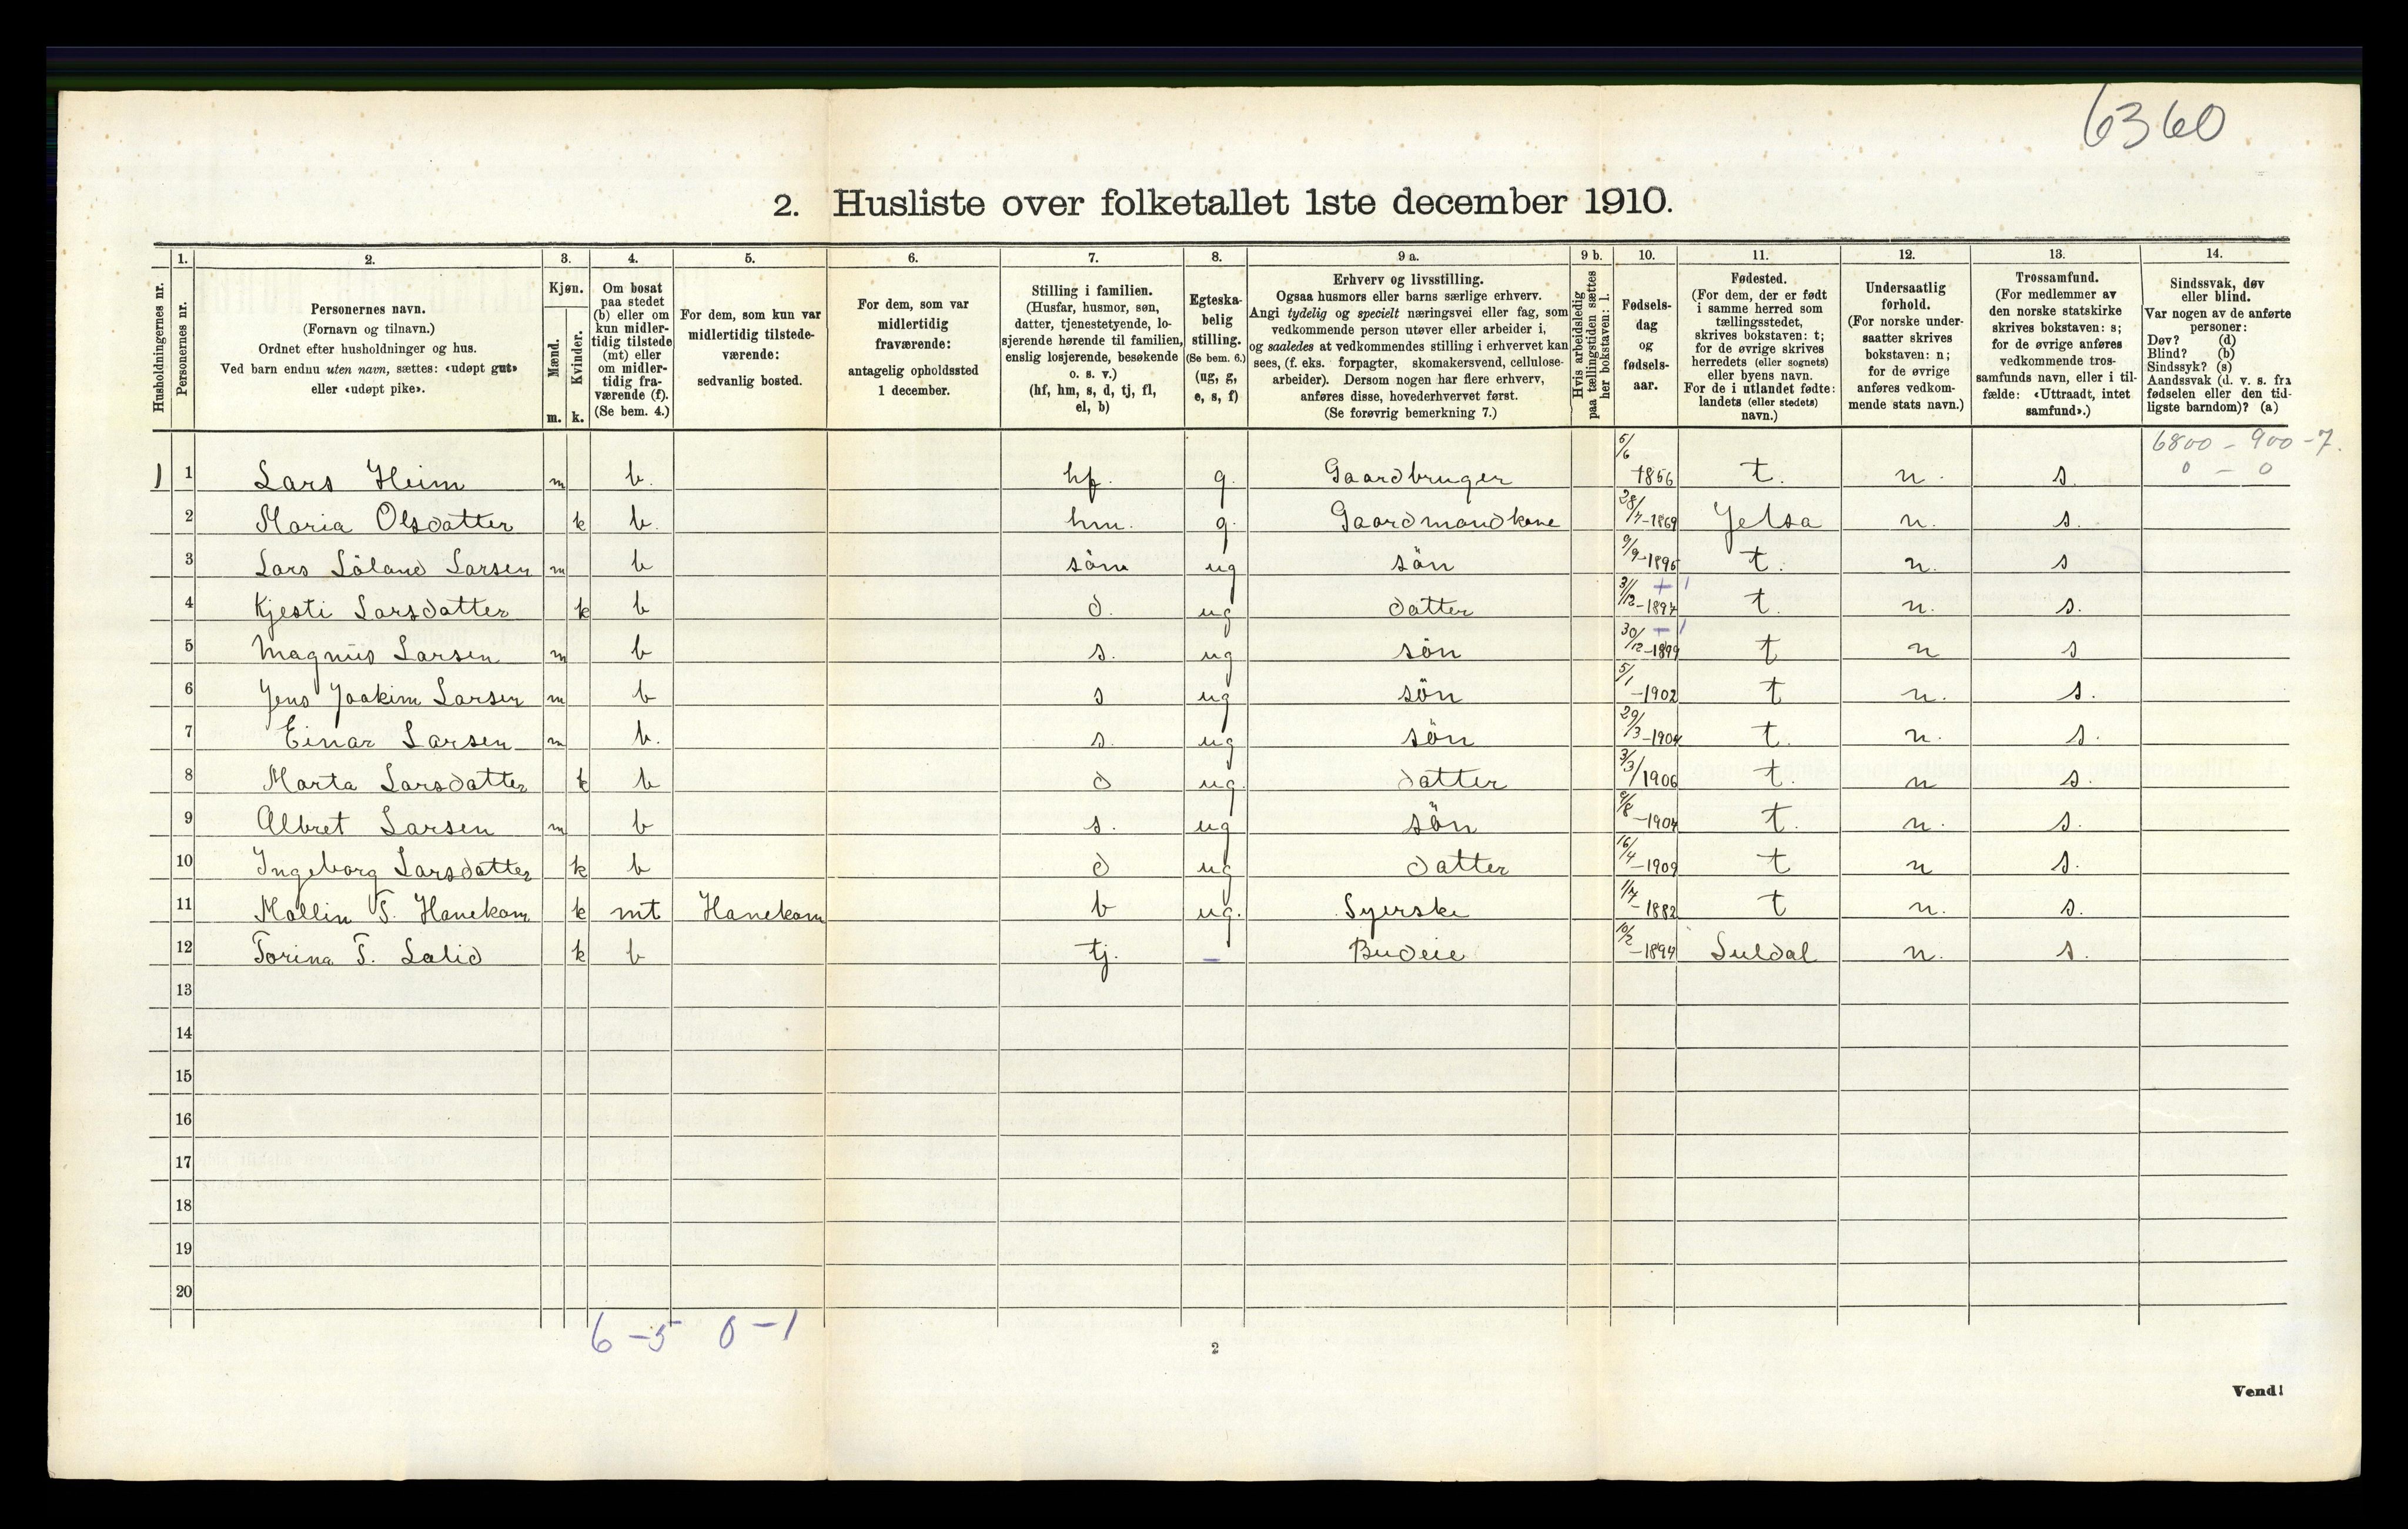 6360
2. Husliste over folketallet 1ste december 1910.
Husholdningernes nr.
1.
Personernes nr.
2.
Personernes navn.
(Fornavn og tilnavn.)
Ordnet efter husholdninger og hus.
Ved barn endnu uten navn, sættes: «udøpt gut»
eller «udøpt pike».
3.
Kjøn.
Mænd.
Kvinder.
m. k.
4.
Om bosat
paa stedet
(b) eller om
kun midler-
tidig tilstede
(mt) eller
om midler-
tidig fra-
værende (f).
(Se bem. 4.)
5.
For dem, som kun var
midlertidig tilstede-
værende:
sedvanlig bosted.
6.
For dem, som var
midlertidig
fraværende:
antagelig opholdssted
1 december.
7.
Stilling i familien.
(Husfar, husmor, søn,
datter, tjenestetyende, lo-
sjerende hørende til familien,
enslig losjerende, besøkende
o. s. v.)
(hf, hm, s, d, tj, fl,
el, b)
8.
Egteska-
belig
stilling.
(Se bem. 6.)
(ug, g,
e, s, f)
9 a.
Erhverv og livsstilling.
Ogsaa husmors eller barns særlige erhverv.
Angi tydelig og specielt næringsvei eller fag, som
vedkommende person utøver eller arbeider i,
og saaledes at vedkommendes stilling i erhvervet kan
sees, (f. eks. forpagter, skomakersvend, cellulose-
arbeider). Dersom nogen har flere erhverv,
anføres disse, hovederhvervet først.
(Se forøvrig bemerkning 7.)
9 b.
Hvis arbeidsledig
paa tællingstiden sættes
her bokstaven: l.
10.
Fødsels-
dag
og
fødsels-
aar.
11.
Fødested.
(For dem, der er født
i samme herred som
tællingsstedet,
skrives bokstaven: t;
for de øvrige skrives
herredets (eller sognets)
eller byens navn.
For de i utlandet fødte:
landets (eller stedets)
navn.)
12.
Undersaatlig
forhold.
(For norske under-
saatter skrives
bokstaven: n;
for de øvrige
anføres vedkom-
mende stats navn.)
13.
Trossamfund.
(For medlemmer av
den norske statskirke
skrives bokstaven: s;
for de øvrige anføres
vedkommende tros-
samfunds navn, eller i til-
fælde: «Uttraadt, intet
samfund».)
14.
Sindssvak, døv
eller blind.
Var nogen av de anførte
personer:
Døv? (d)
Blind? (b)
Sindssyk? (s)
Aandssvak (d. v. s. fra
fødselen eller den tid-
ligste barndom)? (a)
6800 - 900 - 7.
0 - 0
1 1 Lars Heim m b. hf. g. Gaardbruger 5/6 1856 t. n. s.
2 Maria Olsdatter k b. hm. g. Gaardmandkone 28/7-1869 Jelsa n. s.
3 Lars Löland Larsen m b sön ug sön 9/9-1896 t. n. s
4 Kjesti Larsdatter k b d. ug datter 31/12-1897 t. n. s.
5 Magnus Larsen m b s. ug sön 30/12-1899 t n s
6 Jens Joakim Larsen m b s ug sön 5/1-1902 t n. s.
7 Einar Larsen m b. s. ug sön 29/3-1904 t. n. s.
8 Marta Larsdatter k b d ug. datter 3/3/1906 t. n s.
9 Albret Larsen m b s. ug sön t. n. s.
10 Ingeborg Larsdatter k b d ug datter 16/4-1909 t n s.
11 Mallin T. Hanekam k mt Hanekam b ug. Syerske 1/7-1882 t n. s.
12 Torina T. Lalid k b tj. - Budeie 10/2-1894 Suldal n. s.
13
14
15
16
17
18
19
20
6-5 0-1
2
Vend!